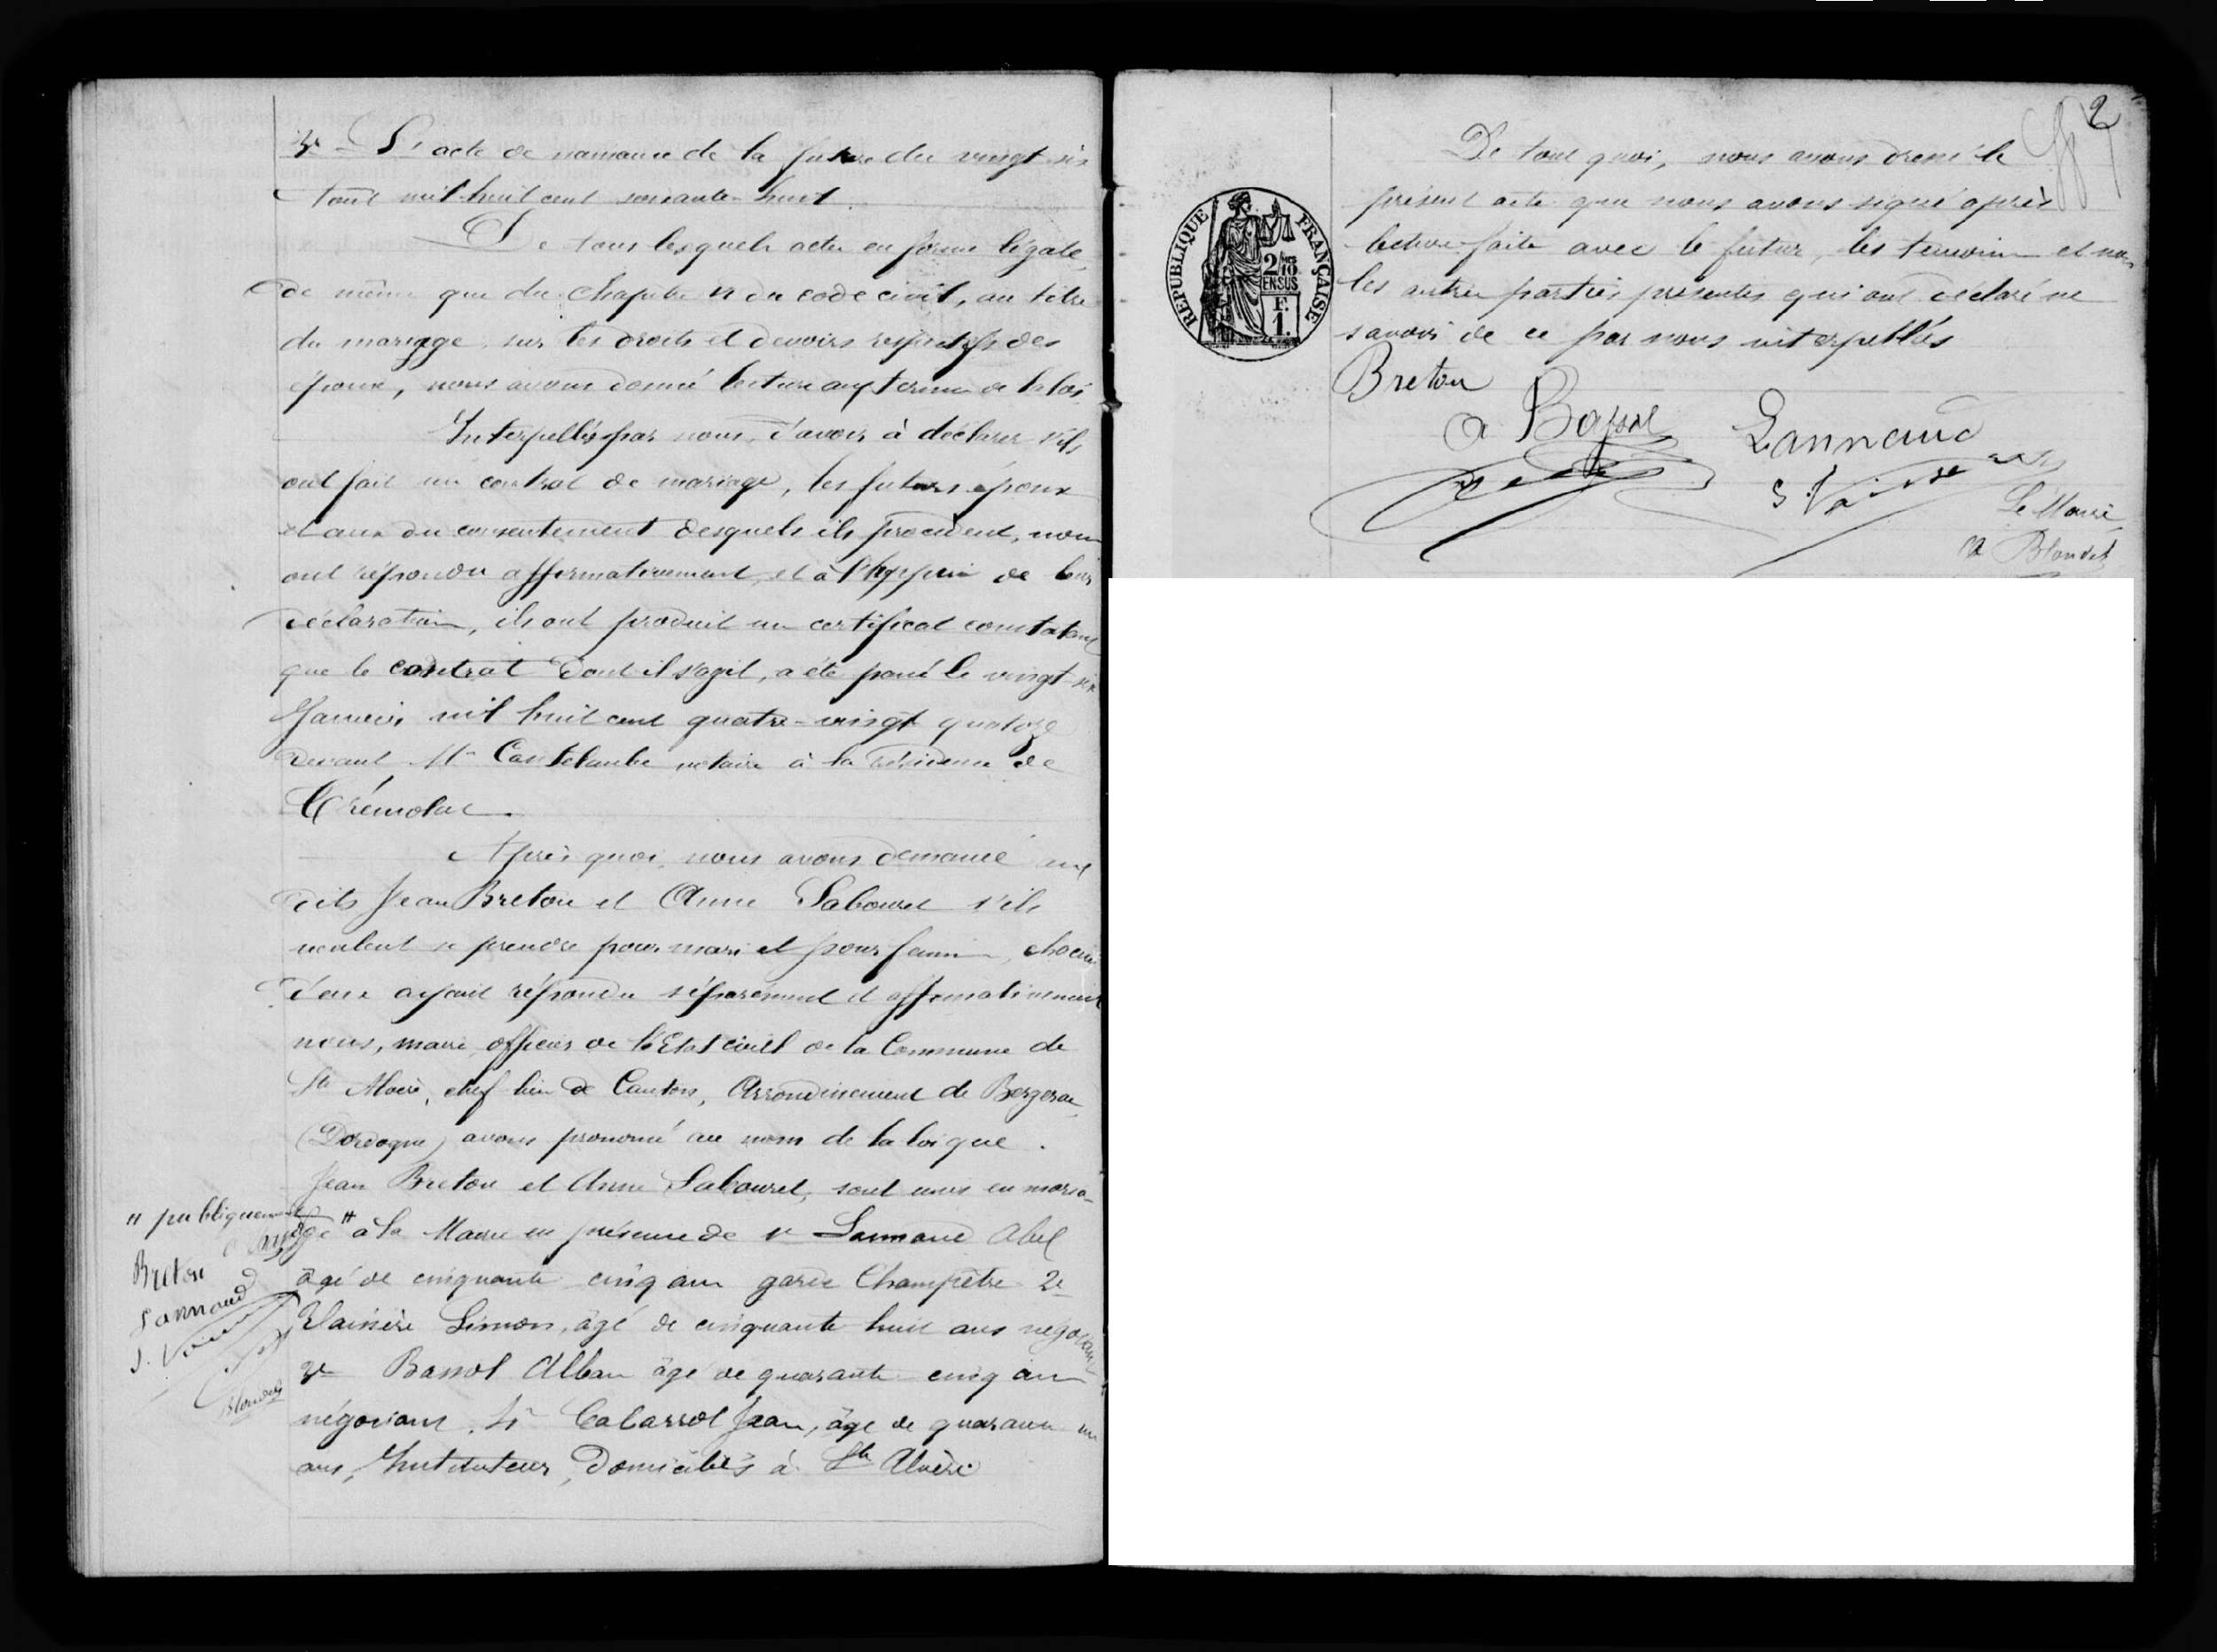 3° L'acte de naissance de la future du vingt six
août mil huit cent soixante-huit.
De tous lesquels actes en forme légale,
de même que du Chapitre VI du code civil, au titre
du mariage, sur les droits et devoirs respectifs des
époux, nous avons donné lecture aux termes de la loi.
Interpellés par nous, d'avoir à déclarer s'ils
ont fait un contrat de mariage, les futurs époux
et ceux du consentement desquels ils procèdent, nous
ont répondu affirmativement, et à l'appui de leur
déclaration, ils ont produit un certificat constatant
que le contrat dont il s'agit, a été passé le vingt six
Janvier mil huit cent quatre-vingt quatorze
devant Me notaire à la résidence de
Trémolat.
Après quoi, nous avons demandé aux
dits Jean Breton et Anne Labouret s'ils
veulent se prendre pour mari et pour femme, chacun
d'eux ayant répondu séparément et affirmativement
nous, maire officier de l'Etat civil de la Commune de
Ste Alvère, chef lieu de Canton, Arrondissement de Bergerac
(Dordogne) avons prononcé au nom de la loi que
Jean Breton et Anne Labouret, sont unis en maria-
" publiquement
ge " à la Mairie en présence de 1° Lannaud Abel
âgé de cinquante cinq ans garde Champêtre 2°
Simon, âgé de cinquante huit ans négociant
3° Bassol Alban âgé de quarante cinq ans
négociant, 4° Calassol Jean, âgé de quarante un
ans, Instituteur, domiciliés à Ste Alvère
Breton
Lannaud
Blondel
2
De tout quoi, nous avons dressé le
présent acte que nous avons signé après
lecture faite avec le futur, les témoins et non
les autres parties présentes qui ont déclaré ne
savoir de ce par nous interpellés
Breton
A Bassol Lannaud
Le Maire
A Blondel
RÉPUBLIQUE FRANÇAISE
2/10
EN SUS
F.
1.